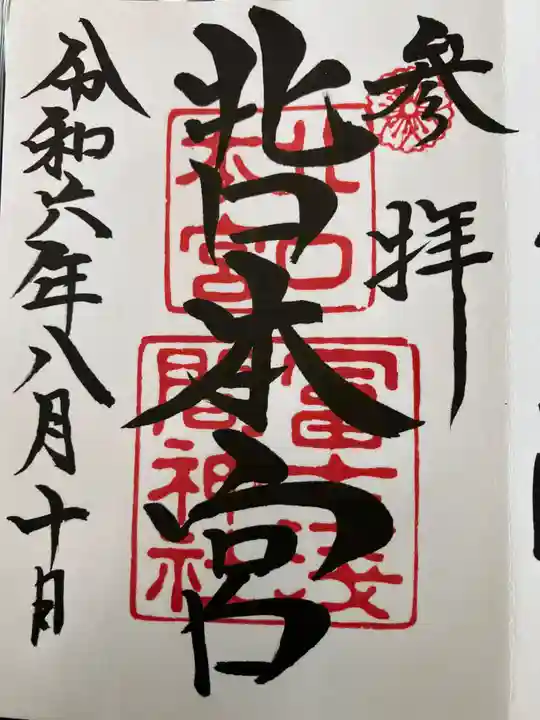 参拝
北口本宮
北口
本宮
冨士浅
間神社
令和六年八月十日